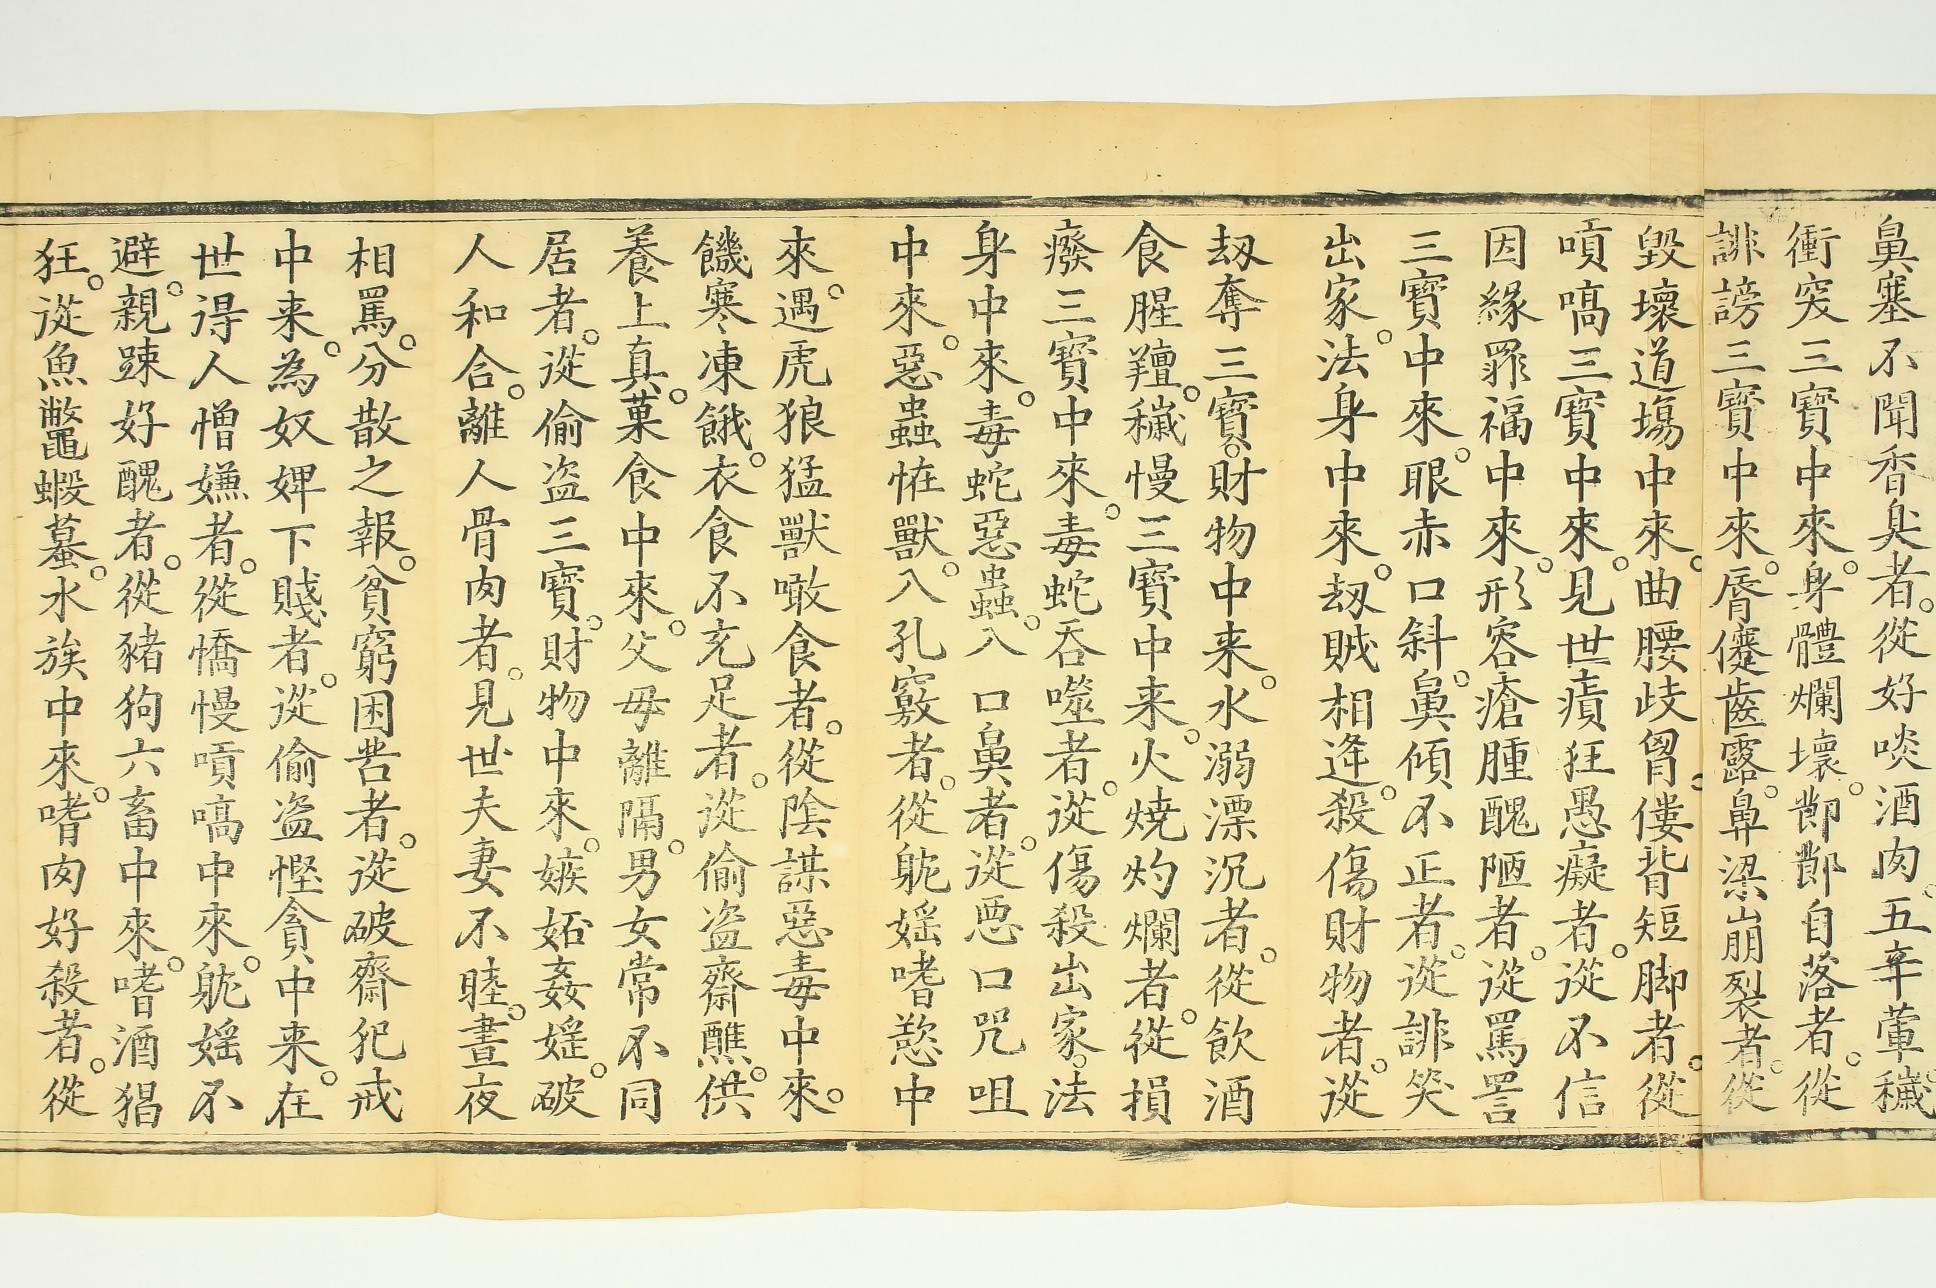 鼻塞不聞香臭者。從好啖酒肉。五辛葷穢。
衝突三寶中來。身體爛壞。鄷鄷自落者。從
誹謗三寶中來。脣僂齒露。鼻梁崩裂者。從
毀壞道塲中來。曲腰歧胷。僂背短脚者。從
嗔嗃三寶中來。見世癀狂愚癡者。從不信
因緣罪福中來。形容瘡腫醜陋者。從罵詈
三寶中來。眼赤口斜。鼻傾不正者。從誹笑
出家。法身中來。刼賊相逢。殺傷財物者。從
刼奪三寶。財物中来。水溺漂沉者。從飲酒
食腥羶。穢慢三寶中来。火燒灼爛者。從損
癈三寶中來。毒蛇吞噬者。從傷殺出家。法
身中來。毒蛇惡蟲。入口鼻者。從惡口咒咀
中來。惡蟲恠獸。入孔竅者。從躭婬嗜慾中
來。遇虎狼猛獸噉食者。從陰謀惡毒中來。
饑寒凍餓。衣食不充足者。從偷盜齋醮。供
養上真。菓食中來。父毋離隔。男女常不同
居者。從偷盜三寶。財物中來。嫉妬姦婬。破
人和合。離人骨肉者。見世夫妻不睦。晝夜
相罵。分散之報。貧窮困苦者。從破齋犯戒
中来。為奴婢下賤者。從偷盜慳貪中来。在
世得人憎嫌者。從憍慢嗔嗃中來。躭婬不
避。親踈好醜者。從豬狗六畜中來。嗜酒猖
狂。從魚鼈蝦蟇。水族中來。嗜肉好殺者。從